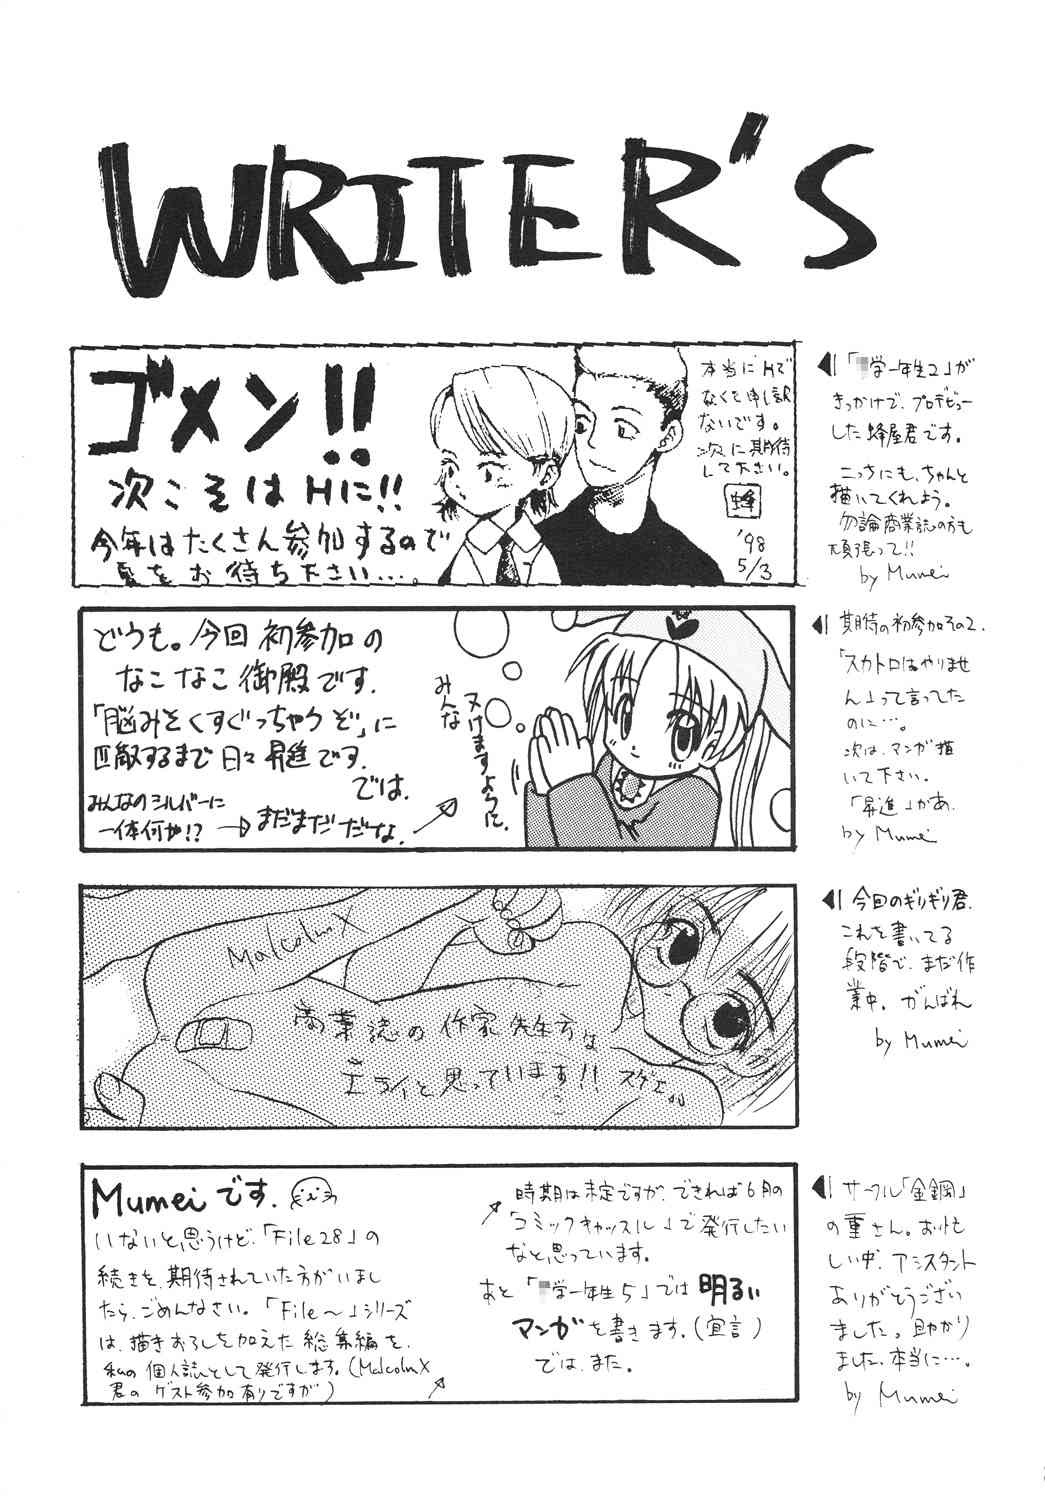 WRITER'S
ゴメン!!
次こそはHに!!
今年はたくさん参加するので
夏をお待ち下さい…。
本当にHで
なくて申し訳
ないです。
次に期待
して下さい。
蜂
'98
5/3
「学一年生2」が
きっかけで、プロデビュー
した蜂屋君です。
こっちにも、ちゃんと
描いてくれよう。
勿論商業誌の方も
頑張って!!
by Mumei
どうも。今回初参加の
なこなこ御殿です。
「脳みそくすぐっちゃうぞ」に
匹敵するまで日々昇進です。
では。
みんなのシルバーに
一体何が!?
→まだまだだな。
みんな
ヌけますように。
期待の初参加その2.
「スカトロはやりませ
ん」って言ってた
のに…。
次は、マンガ描
いて下さい。
「昇進」かあ。
by Mumei
Malcolm X
商業誌の作家先生方は
エライと思っています!!スゲェ。
今回のギリギリ君.
これを書いてる
段階で、まだ作
業中。がんばれ
by Mumei
Mumeiです.
いないと思うけど、「File28」の
続きを、期待されていた方がいまし
たら、ごめんなさい。「File〜」シリーズ
は、描きおろしを加えた総集編を、
私の個人誌として発行します。(Malcolm X
君のゲスト参加有りですが)
時期は未定ですが、できれば6月の
「コミックキャッスル」で発行したい
なと思っています。
あと「学一年生5」では明るい
マンガを書きます。(宣言)
では、また。
サークル「金鋼」
の重さん。お忙
しい中、アシスタント
ありがとうござい
ました。助かり
ました、本当に…。
by Mumei